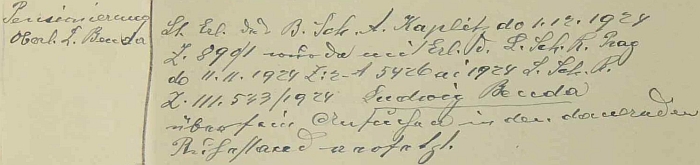 Pensionierung
Oberl. L. Benda
Lt. Erl. des B. Sch. A. Kaplitz do 1.12.1924
Z. 8991 wurde mit Erl. d. L. Sch. R. Prag
do 11.11.1924 Z: 2-A 5426 ai 1924 L. Sch. R.
Z. III. 523/1924 Ludwig Benda
über sein Ansuchen in den dauernden
Ruhestand versetzt.